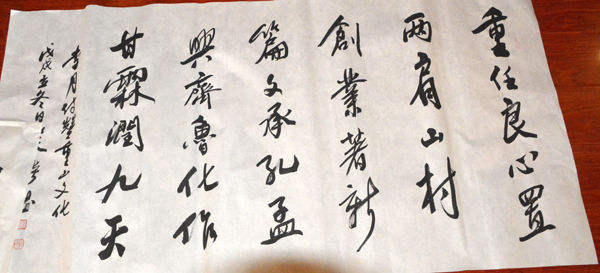 重任良心置
两肩山村
創業著新
篇文承孔孟
興齊魯化作
甘霖潤九天
李月付豐重山文化
戊戌立冬日